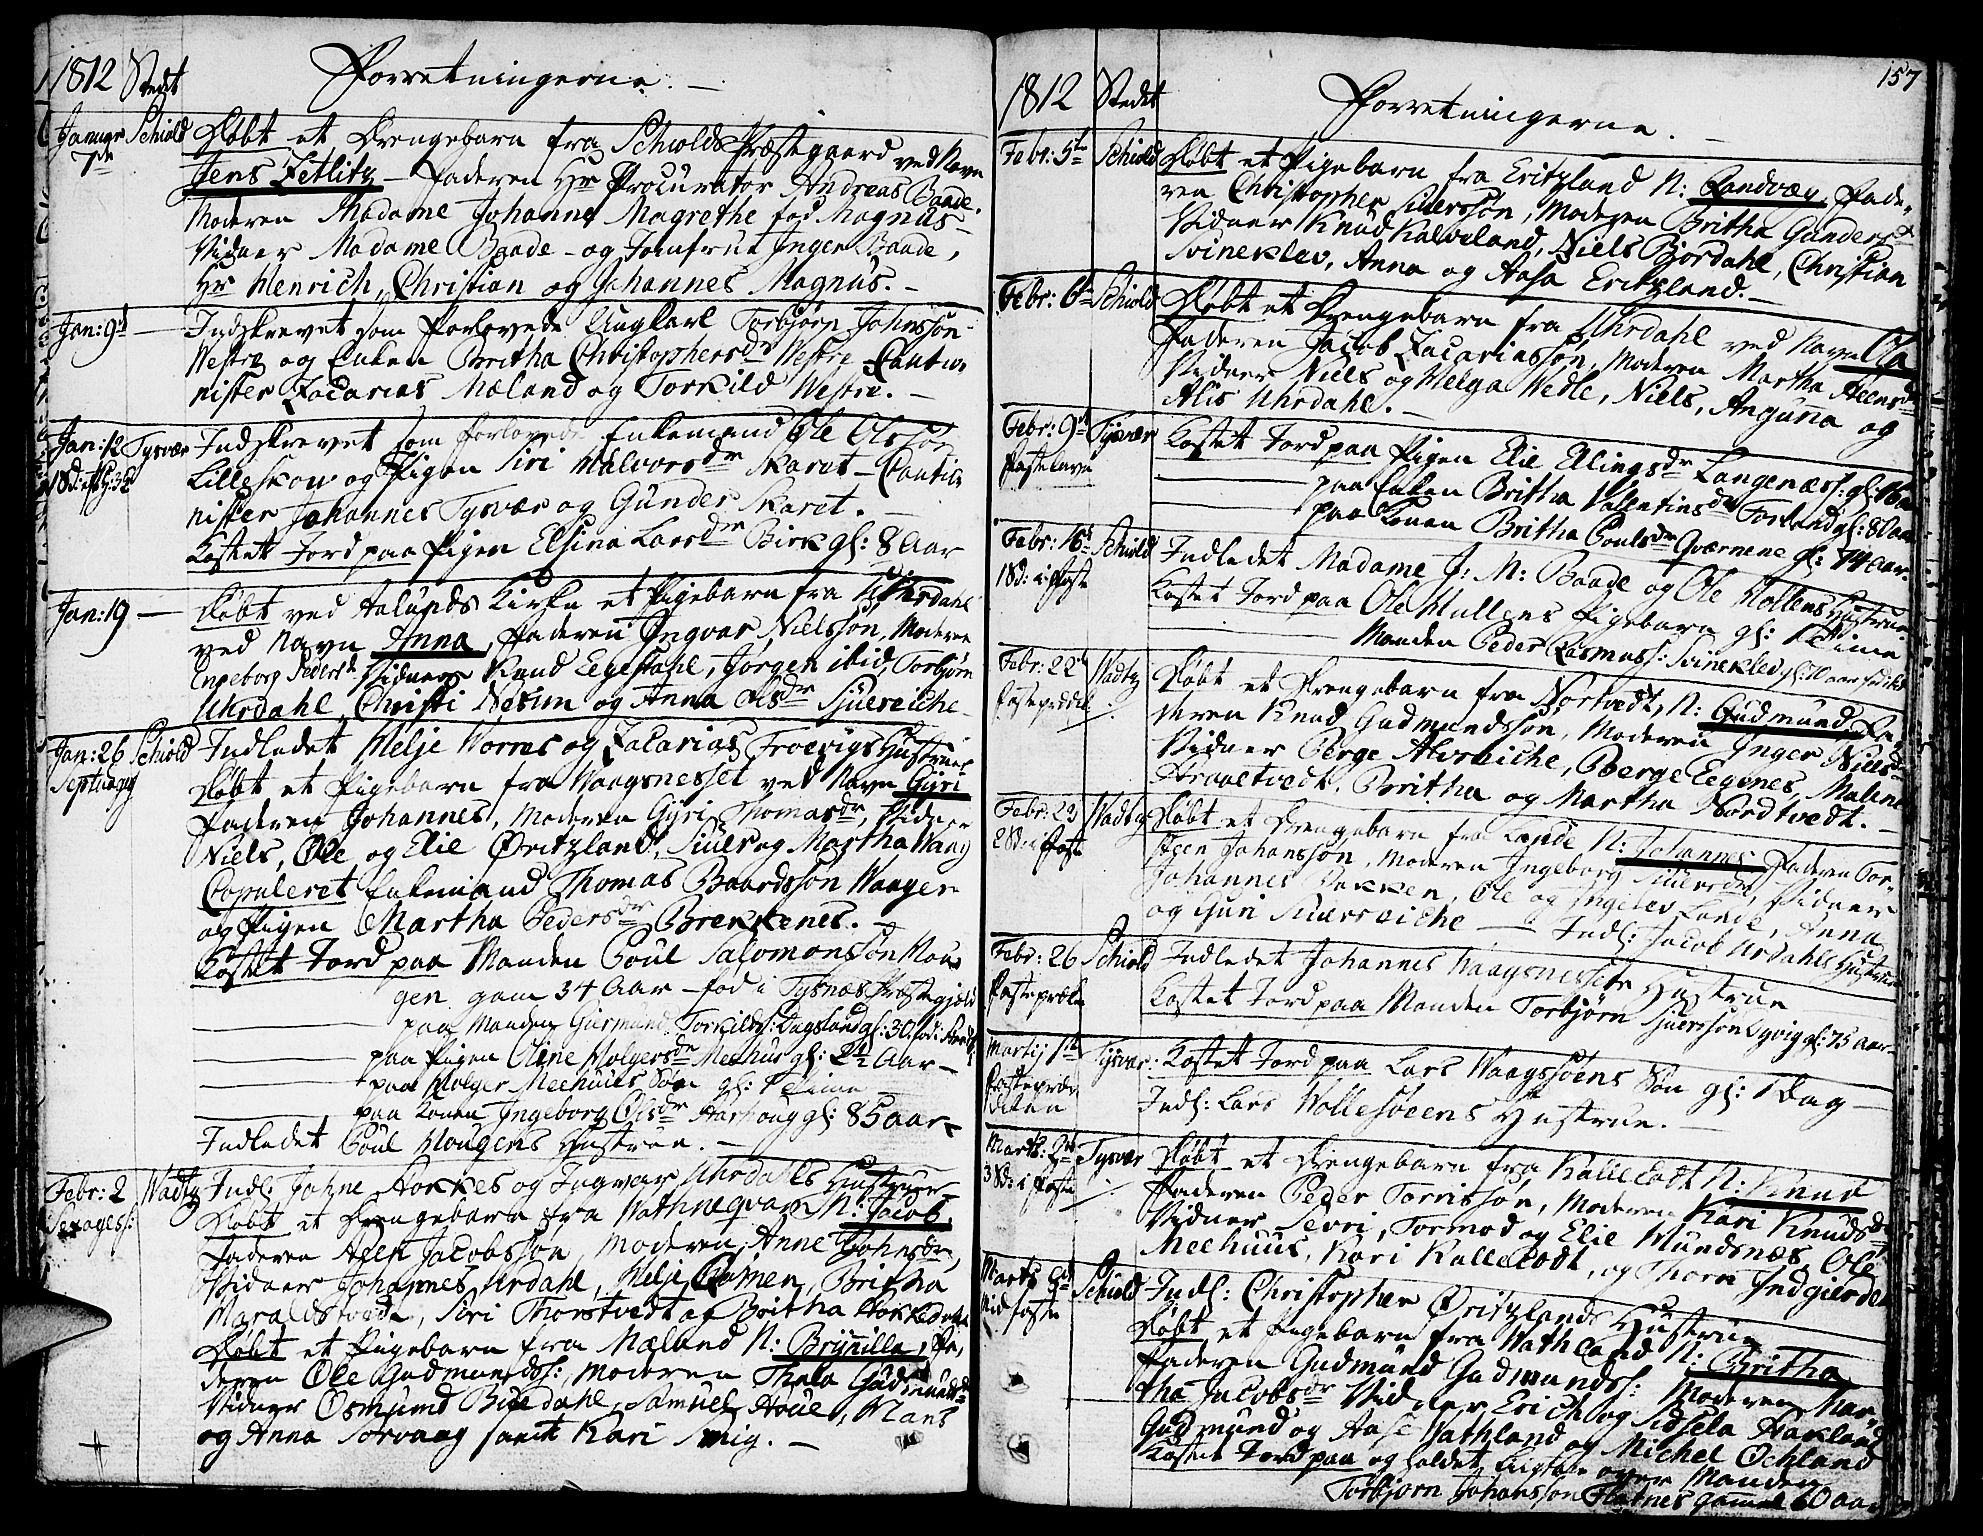 1812 Stedt Forretningerne. -
Januar 1ste Schiold Døbt et Drengebarn fra Schiolds Præstegaard ved Navn
Jens Zetlitz - Faderen Hr Procurator Andreas Baade.
Moderen Madame Johanne Magrethe fød Magnus -
Vidner Madame Baade - og Jomfrue Inger Baade,
Hr Henrich, Christian og Johannes Magnus. -
Jan: 9d - Indskrevet som Forlovede Ungkarl Torbjørn Johnssøn
Westre og Enken Britha Christophersdr Westre Cauti-
nister Zacarias Mæland og Torkild Westre. -
Jan: 12 Tysvær Indskrevet som forlovede Enkemand Ole Olssøn
Lilleskow og Pigen Siri Halvorsdr Skaret - Cauti-
nister Johannes Tysvær og Gunder Skaret. -
Kastet Jord paa Pigen Elsina Larsdr Birk gl: 8 Aar
Jan: 19 - Døbt ved Aalunds Kirke et Pigebarn fra Uhrdahl
ved Navn Anna, Faderen Ingvar Nielssøn, Moderen
Engeborg Pedersdr Vidner Knud Eegesdahl, Jørgen ibid, Torbjørn
Uhrdahl, Christi Nesum og Anna Olsdr Siuereiche
Jan: 26 Schiold Indledet Helje Worres og Zacarias Troevigs Hustruer
Septuag: Døbt et Pigebarn fra Waagsnesset ved Navn Gyri
Faderen Johannes, Moderen Gyri Thomasdr, Vidner
Niels, Ole og Elie Øritzland, Siuer og Martha Waag
Copuleret Enkemand Thomas Baardssøn Waage
og Pigen Martha Pedersdr Brekkenes. -
Kastet Jord paa Manden Poul Salomonsøn Hou-
gen gam 34 Aar - fød i Tysnæs Præstegjæld
paa Manden Gurmund Torkilds: Dagsland gl: 30
paa Pigen Oline Holgersdr Meehus gl: 2½ Aar -
paa Holger Meehuus Søn gl: 1 Time
paa Konen Ingeborg Olsdr Aarhoug gl: 85 aar
Indledet Poul Hougens Hustrue. -
Febr: 2 Wadtz Indl: Johne Aarkes og Ingvar Uhrdahls Hustruer
Sexages: Døbt et Drengebarn fra Wathneqvam N: Jacob,
Faderen Aeen Jacobssøn, Moderen Anne Johnsdr,
Vidner Johannes Urdahl, Helje Ramen, Britha
Haraldstvedt, Siri Thorstvedt og Britha
Døbt et Pigebarn fra Mæland N: Brynilla, Fa-
deren Ole Gudmunds:, Moderen Thala Gudmundsdr
Vidner Osmund Buedahl, Samuel Houe, Mans
og Anna Sørvaag samt Kari Smig. -
157
1812 Stedet Forretningerne. -
Febr: 5te Schiold Døbt et Pigebarn fra Eritzland N: Randvæg, Fade-
ren Christopher Siuerssøn, Moderen Britha Gundersdr
Vidner Knud Kalveland, Niels Bjordahl, Christian
Svineklev, Anna og Aasa Eritzland. -
Febr: 6te Schiold Døbt et Drengebarn fra Uhrdahl ved Navn Ola
Faderen Jacob Zacariassøn, Moderen Martha Aeensdr
Vidner Niels og Helga Wedle, Niels, Anguna og
Alis Uhrdahl. -
Febr: 9d Tysvær Kastet Jord paa Pigen Elie Elingsdr Langenæss: gl: 16 aar
Fastelavn paa Enken Britha Valentinsdr Torland gl: 80 aar
paa Konen Britha Poulsdr Qværnene gl: 74 aar.
Febr: 16d Schiold Indledet Madame J: M: Baade og Ole Mollens Hustrue.
1 Sd: i Faste Kastet Jord paa Ole Mullens Pigebarn gl: 1 Time
Manden Peder Rasmuss: Svineklev gl: 40 aar
Febr: 22 Wadtz Døbt et Drengebarn fra Nortvedt, N: Gudmund, Fa-
fastepræd: deren Knud Gudmundssøn, Moderen Inger Nielsdr
Vidner Berge Alvseiche, Berge Eegenes, Malene
Straaetvedt, Britha og Martha Nordtvedt. -
Febr: 23 Wadtz Døbt et Drengebarn fra Lande N: Johannes, Faderen Tor-
2 Sd: i Faste sten Johanssøn, Moderen Ingeborg Siuersdr, Vidner
Johannes Bakken, Ole og Ingelev Lande, Anna
og Guri Siuerseiche - Indl: Jacob Urdahls Hustrue
Febr: 26 Schiold Indledet Johannes Waagsnessets Hustrue
Fastepræk: Kastet Jord paa Manden Torbjørn Sjuerssøn Dyvig gl: 75 aar -
Martij 1ste Tysvær: Kastet Jord paa Lars Waagssøens Søn gl: 1 Dag -
Indl: Lars Wollesøeens Hustrue. -
Marts: Tysvær Døbt et Drengebarn fra Kallelodt N: Knud
3 Sd: i Faste Faderen Peder Torrissøn, Moderen Kari Knudsdr
Vidner Sevri, Tormod og Elie Mundsnæs, Ole
Meehuus, Kari Kallelodt, og Thora Indgierde
Marts Schiold Indl: Christopher Øritzlands Hustrue
Mid faste Døbt et Pigebarn fra Wathland N: Britha
Faderen Gudmund Gudmunds: Moderen Mar-
tha Jacobsdr Vidner Erich og Sidsela Aakland
Gudmund og Aase Wathland og Michel Øchland
Kastet Jord paa og holdet Ligtale over Manden
Torbjørn Johanssøn Flatnes gammel 60 aar